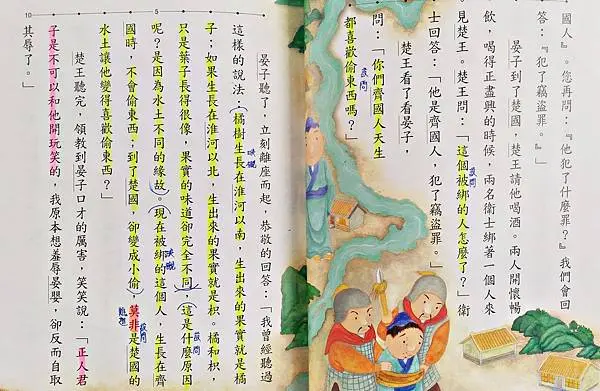 國人』。您再問：『他犯了什麼罪？』我們會回
答：『犯了竊盜罪。』」
晏子到了楚國，楚王請他喝酒。兩人開懷暢
飲，喝得正盡興的時候，兩名衛士綁著一個人來
見楚王。楚王問：「這個被綁的人怎麼了？」衛
士回答：「他是齊國人，犯了竊盜罪。」
楚王看了看晏子，
問：「你們齊國人天生
都喜歡偷東西嗎？」
晏子聽了，立刻離座而起，恭敬的回答：「我曾經聽過
這樣的說法：橘樹生長在淮河以南，生出來的果實就是橘
子；如果生長在淮河以北，生出來的果實就是枳。橘和枳，
只是葉子長得很像，果實的味道卻完全不同，這是什麼原因
呢？是因為水土不同的緣故。現在被綁的這個人，生長在齊
國時，不會偷東西；到了楚國，卻變成小偷，莫非是楚國的
水土讓他變得喜歡偷東西？」
楚王聽完，領教到晏子口才的厲害，笑笑說：「正人君
子是不可以和他開玩笑的，我原本想羞辱晏嬰，卻反而自取
其辱了。」
5
10
反問
反問
映襯
映襯
反問
反問